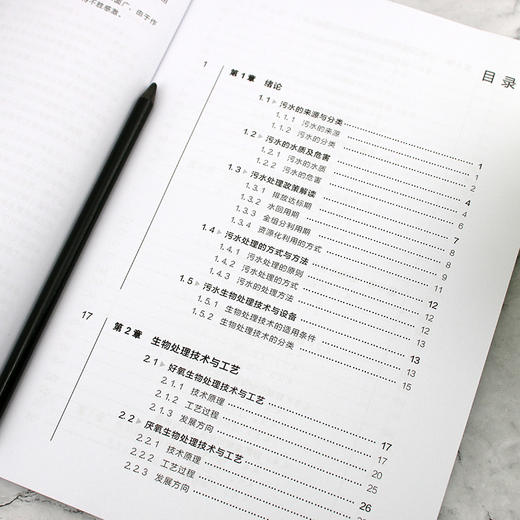 面广,由于作
得不胜感激。
目录
1 第1章 绪论
1.1 污水的来源与分类 1
1.1.1 污水的来源 1
1.1.2 污水的分类 2
1.2 污水的水质及危害 4
1.2.1 污水的水质 4
1.2.2 污水的危害 5
1.3 污水处理政策解读 7
1.3.1 排放达标期 7
1.3.2 水回用期 8
1.3.3 全组分利用期 8
1.3.4 资源化利用的方式 9
1.4 污水处理的方式与方法 12
1.4.1 污水处理的原则 12
1.4.2 污水处理的方式 12
1.4.3 污水的处理方法 13
1.5 污水生物处理技术与设备 13
1.5.1 生物处理技术的适用条件 13
1.5.2 生物处理技术的分类 15
17 第2章 生物处理技术与工艺
2.1 好氧生物处理技术与工艺 17
2.1.1 技术原理 17
2.1.2 工艺过程 20
2.1.3 发展方向 25
2.2 厌氧生物处理技术与工艺 26
2.2.1 技术原理 26
2.2.2 工艺过程
2.2.3 发展方向